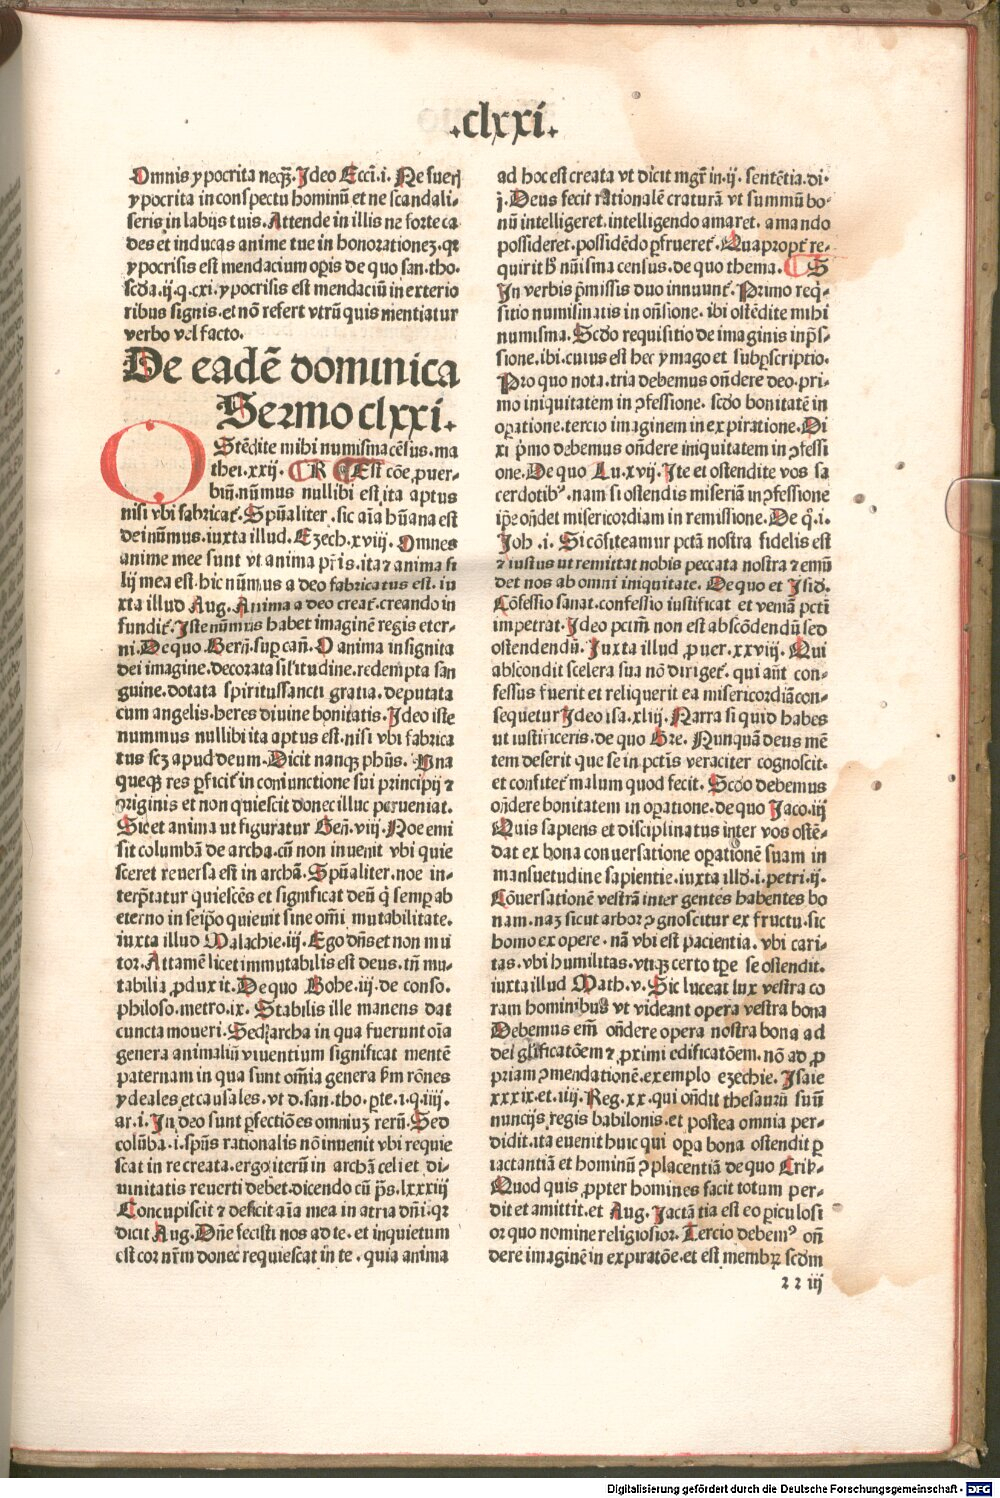 .clxxi.
Omnis ypocrita neqȝ. Ideo Ecci. i. Ne fueri
ypocrita in conspectu hominū et ne scandali-
seris in labijs tuis. Attende in illis ne forte ca
des et inducas anime tue in honorationeȝ. qr
ypocrisis est mendacium oꝑis de quo san. tho.
scďa. ij. q. cxi. ypocrisis est mendaciū in exterio
ribus signis. et nō refert vtrū quis mentiatur
verbo vel facto.
De eadē dominica
Sermo clxxi.
OStēdite mihi numisma cēsus. ma
thei. xxij. R Est cōe ꝓuer-
biū. nūmus nullibi est ita aptus
nisi vbi fabricat̄. Spūaliter. sic aīa hūana est
dei nūmus. iuxta illud. Ezech. xviij. Omnes
anime mee sunt vt anima pr̄is. ita ⁊ anima fi
lij mea est. hic nūmus a deo fabricatus est. iu
xta illud Aug. Anima a deo creat̄. creando in
fundit̄. Iste nūmus habet imaginē regis eter-
ni. De quo Berñ. suꝑ cañ. O anima insignita
dei imagine. decorata silitudine. redempta san
guine. dotata spiritussancti gratia. deputata
cum angelis. heres diuine bonitatis. Ideo iste
nummus nullibi ita aptus est. nisi vbi fabrica
tus scȝ apud deum. Dicit nanqȝ phūs. Vna
queqȝ res ꝑficit̄ in coniunctione sui principij ⁊
originis et non quiescit donec illuc perueniat.
Sic et anima ut figuratur Geñ. viij. Noe emi
sit columbā de archa. cū non inuenit vbi quie
sceret reuersa est in archā. Spūaliter. noe in-
terp̄tatur quiescēs et significat deū q̄ semꝑ ab
eterno in seip̄o quieuit sine om̄i mutabilitate.
iuxta illud Malachie. iij. Ego dn̄s et non mu
tor. Attamē licet immutabilis est deus. tn̄ mu-
tabilia ꝓduxit. De quo Bohe. iij. de conso.
philoso. metro. ix. Stabilis ille manens dat
cuncta moueri. Sed archa in qua fuerunt oīa
genera animaliū viuentium significat mentē
paternam in qua sunt om̄ia genera ẜm rōnes
ydeales et causales. vt d. san. tho. ꝑte. i. q. iiij.
ar. i. In deo sunt ꝑfectiōes omniuȝ rerū. Sed
colūba. i. spūs rationalis nō inuenit vbi requie
scat in re creata. ergo iterū in archā celi et di-
uinitatis reuerti debet. dicendo cū pš. lxxxiij
Concupiscit ⁊ deficit aīa mea in atria dn̄i. qr
dicit Aug. Dn̄e fecisti nos ad te. et inquietum
est cor nr̄m donec requiescat in te. quia anima
ad hoc est creata vt dicit mgr̄ in. ij. sentētia. di.
j. Deus fecit rationalē craturā vt summū bo-
nū intelligeret. intelligendo amaret. amando
possideret. possidēdo ꝑfrueret̄. Quapropt̄ re-
quirit̄ h̄ nūisma census. de quo thema. S
In verbis p̄missis duo innuunt̄. Primo reqͥ-
sitio numismatis in on̄sione. ibi ostēdite mihi
numisma. Scďo requisitio de imaginis inp̄s-
sione. ibi. cuius est hec ymago et subꝑscriptio.
Pro quo nota. tria debemus on̄dere deo. pri-
mo iniquitatem in ꝯfessione. scďo bonitatē in
oꝑatione. tercio imaginem in expiratione. Di
xi p̄mo debemus on̄dere iniquitatem in ꝯfessi
one. De quo Lu. xvij. Ite et ostendite vos sa
cerdotibꝰ. nam si ostendis miseriā in ꝯfessione
ip̄e on̄det misericordiam in remissione. De q̊. i.
Joh. i. Si cōfiteamur pctā nostra fidelis est
⁊ iustus ut remittat nobis peccata nostra ⁊ emū
det nos ab omni iniquitate. De quo et Isiď.
Cōfessio sanat. confessio iustificat et veniā pcti
impetrat. Ideo pctm̄ non est abscōdendū sed
ostendendū. Iuxta illud ꝓuer. xxviij. Qui
abscondit scelera sua nō diriget̄. qui aūt con-
fessus fuerit et reliquerit ea misericordiā con-
sequetur Ideo isa. xliij. Narra si quid habes
ut iustificeris. de quo Gre. Nunquā deus mē
tem deserit que se in pctīs veraciter cognoscit.
et confitet̄ malum quod fecit. Scďo debemus
on̄dere bonitatem in oꝑatione. de quo Jaco. iij
Quis sapiens et disciplinatus inter vos ostē-
dat ex bona conuersatione oꝑationē suam in
mansuetudine sapientie. iuxta illď. i. petri. ij.
Cōuersationē vestrā inter gentes habentes bo
nam. naȝ sicut arbor ꝯgnoscitur ex fructu. sic
homo ex opere. nā vbi est pacientia. vbi cari-
tas. vbi humilitas. vtiqȝ certo tꝑe se ostendit.
iuxta illud Math. v. Sic luceat lux vestra co
ram hominibus vt videant opera vestra bona
Debemus em̄ on̄dere opera nostra bona ad
dei gl̄ificatōem ⁊ ꝓximi edificatōem. nō ad ꝓ
priam ꝯmendationē. exemplo ezechie. Isaie
xxxix. et. iiij. Reg. xx. qui on̄dit thesaurū suū
nuncijs regis babilonis. et postea omnia per-
didit. ita euenit huic qui oꝑa bona ostendit ꝑ
iactantiā et hominū ꝯplacentiā de quo Crib.
Quod quis ꝓpter homines facit totum per-
dit et amittit. et Aug. Jactātia est eo ꝑiculosi
or quo nomine religiosior. Tercio debemꝰ on̄
dere imaginē in expiratōe. et est membꝝ scďm
22 iij
Digitalisierung gefördert durch die Deutsche Forschungsgemeinschaft - DFG